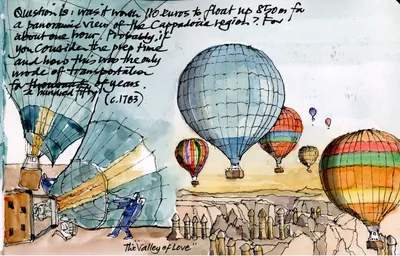 Question is: was it worth 110 euros to float up 850m for
a panoramic view of the Cappadocia region? For
about one hour. Probably, if
you consider the prep time
and how this was the only
mode of transportation
for thousands of years.
a hundred fifty (c.1783)
The "Valley of Love"